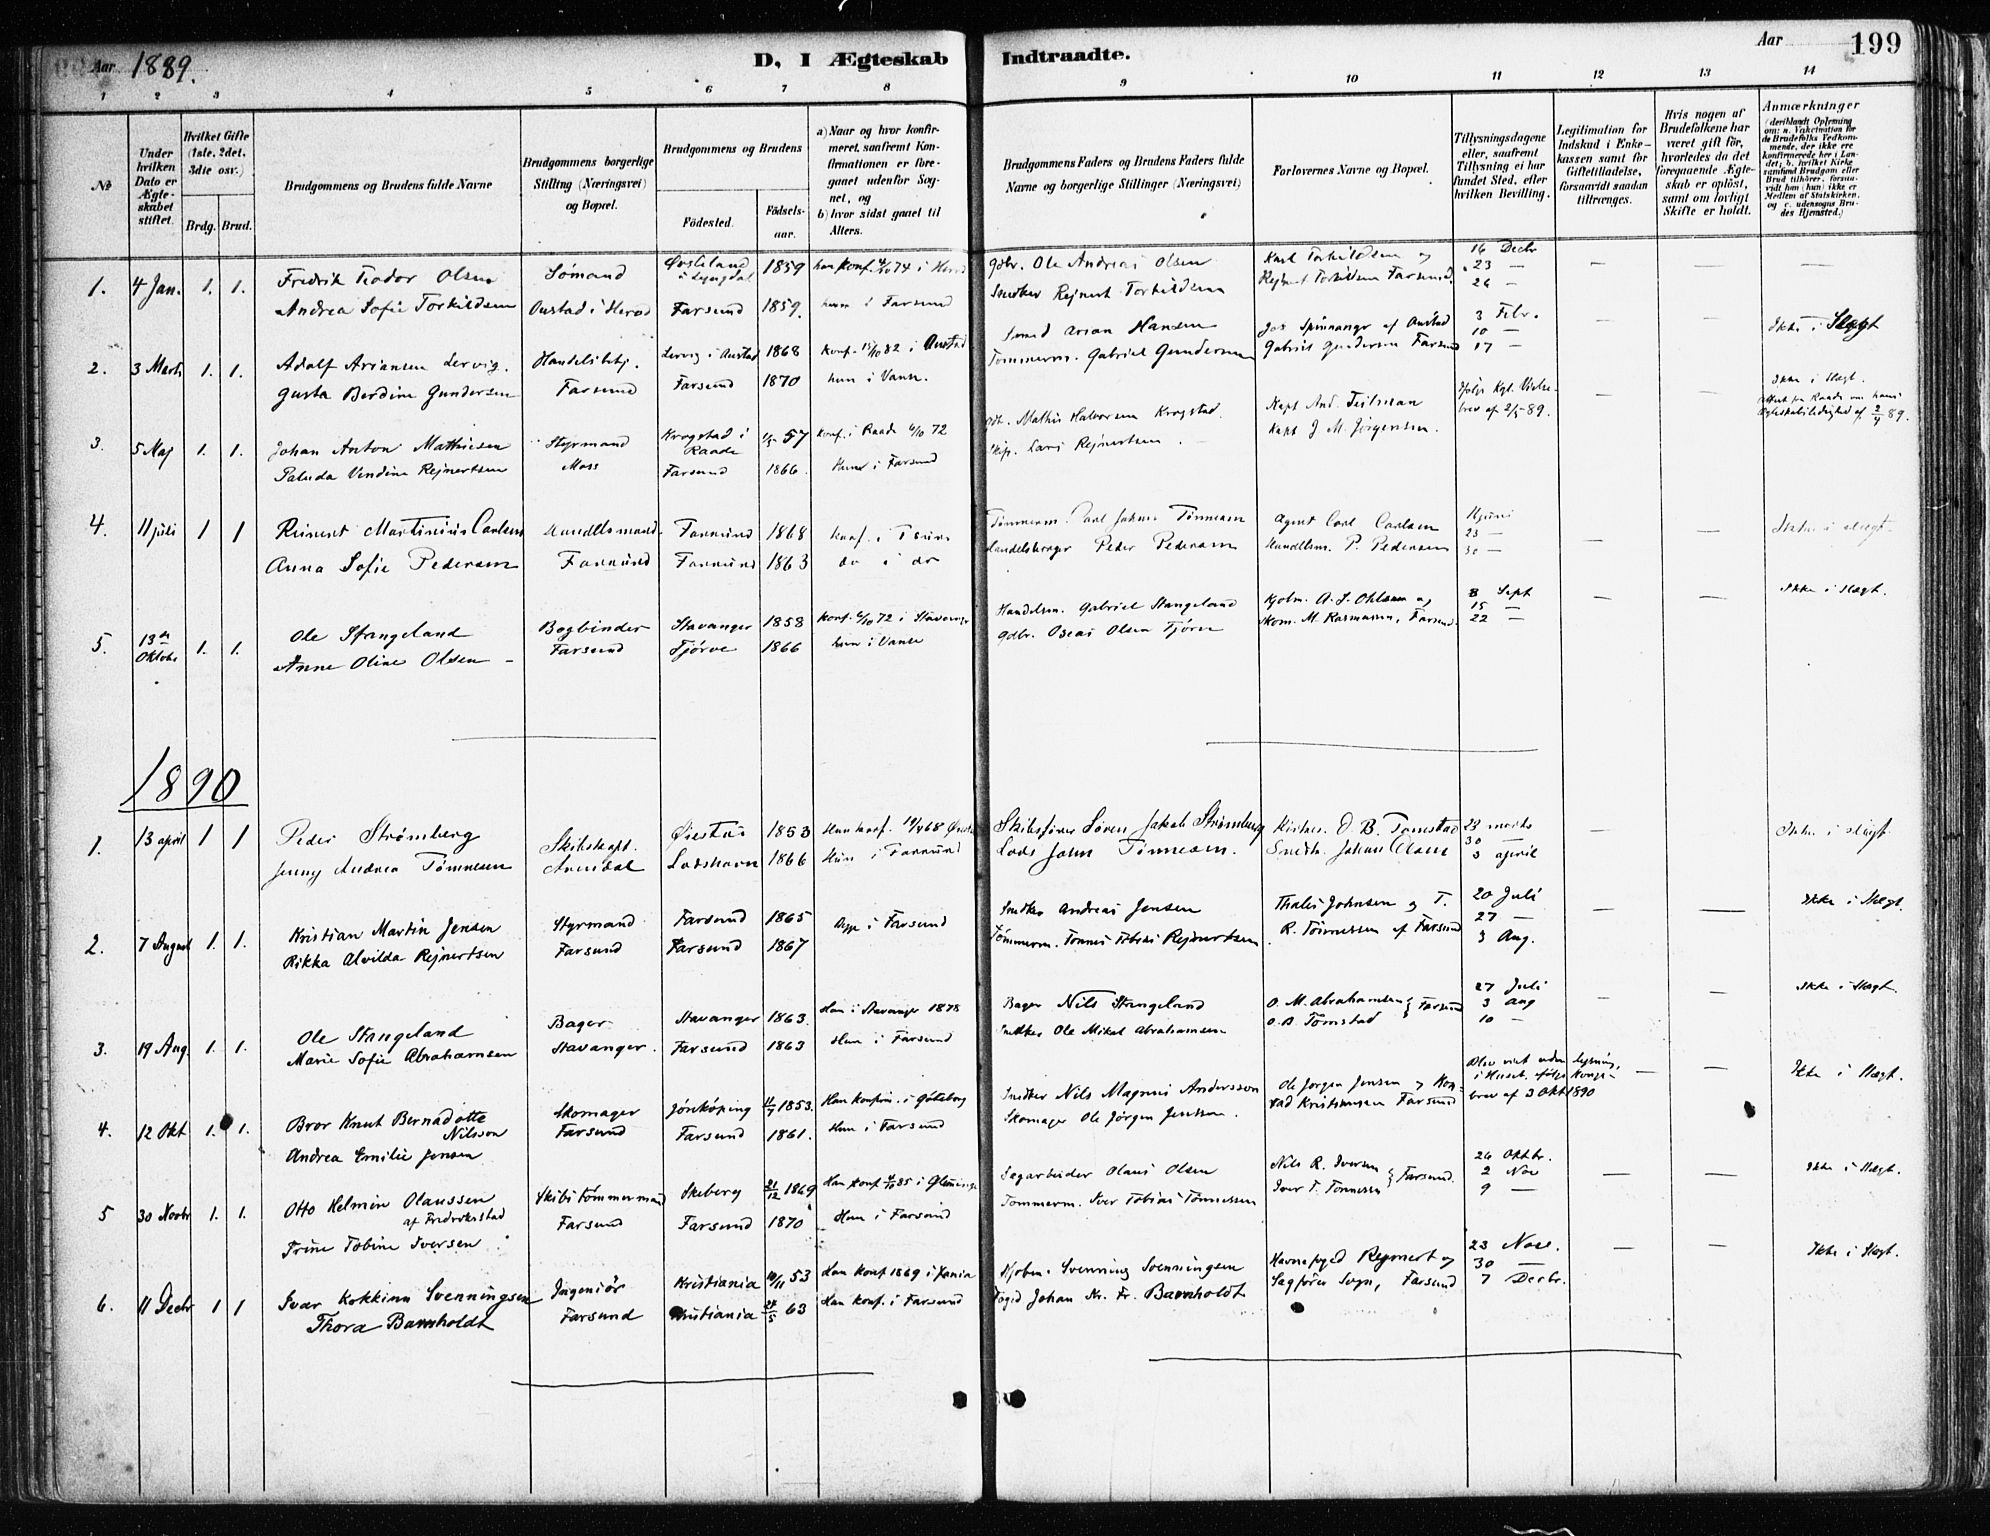 Aar 1889. D. I Ægteskab Indtraadte. Aar 199
1 2 3 4 5 6 7 8 9 10 11 12 13 14
No
Under hvilken Dato er Ægteskabet stiftet.
Hvilket Gifte (1ste, 2det, 3die osv.)
Brdg. Brud.
Brudgommens og Brudens fulde Navne
Brudgommens borgerlige Stilling (Næringsvei) og Bopæl.
Brudgommens og Brudens
Fødested. Fødselsaar.
a) Naar og hvor konfirmeret, saafremt Konfirmationen er foregaaet udenfor Sognet, og
b) hvor sidst gaaet til Alters.
Brudgommens Faders og Brudens Faders fulde Navne og borgerlige Stillinger (Næringsvei)
Forlovernes Navne og Bopæl.
Tillysningsdagene eller, saafremt Tillysning ei har fundet Sted, efter hvilken Bevilling.
Legitimation for Indskud i Enkekassen samt for Giftetilladelse, forsaavidt saadan tiltrænges.
Hvis nogen af Brudefolkene har været gift før, hvorledes da det foregaaende Ægteskab er opløst, samt om lovligt Skifte er holdt.
Anmærkninger (deriblandt Oplysning om: a. Vakcination for de Brudefolks Vedkommende, der ikke ere konfirmerede her i Landet; b. hvilket Kirkesamfund Brudgom eller Brud tilhører, forsaavidt han (hun) ikke er Medlem af Statskirken, og c. udensogns Brudes Hjemsted.)
1. 4 Jan. 1. 1. Fredrik Teodor Olsen Sømand Øvsteland i Lyngdal 1859 han konf. 4/10 74 i Herad Gdbr. Ole Andreas Olsen Karl Torkildsen og 16 Decbr — — —
Andrea Sofie Torkildsen Oustad i Herad Farsund 1859. hun i Farsund Snedker Rejnert Torkildsen Rejnert Torkildsen Farsund. 23 —
26 —
2. 3 Marts 1. 1. Adolf Ariansen Lervig. Handelsbtj. Lervig i Austad 1868 Konf. 15/10 82 i Austad Smed Arian Hansen Jos Spinnanger af Austad 3 Febr. — — Ikke i Slægt
Gusta Berdine Gundersen Farsund Farsund 1870 hun i Vanse. Tømmerm. Gabriel Gundersen Gabriel Gundersen Farsund 10 —
17 —
3. 5 Maj 1. 1. Johan Anton Mathiesen Styrmand Krogstad i Raade 57 konf. i Raade 6/10 72 Mathis Halvorsen Krogstad. Kapt And. Ifølge Kgl. — — Ikke i Slægt.
Paluda Vendine Rejnertsen Moss Farsund 1866. Hun i Farsund Skip. Lars Rejnertsen. Kapt J. M. Jørgensen. brev af 2/5-89.
4. 11 juli 1 1 Reinert Martinius Carlsen Handelsmand. Farsund 1868 Konf. i Tømmerm. Carl Johan Tønnesen Agent Carl Carlsen — — Ikke i slægt
Anna Sofie Pedersen Farsund Farsund 1863 do i do Handelsborger Peder Pedersen Handelsm. P. Pedersen 23 —
30 —
5. 13de Oktobr 1. 1. Ole Stangeland Bogbinder Stavanger 1858 konf. 6/10 72 i Stavanger Handelsm. Gabriel Stangeland Kjøbm. A. S. Ohlsen og 8 Sept — — Ikke i Slægt.
Anne Oline Olsen — Farsund Tjørve 1866 hun i Vanse Gdbr. Oseas Olsen Tjørve Skom. M. Rasmussen, Farsund. 15 —
22 —
1890
1. 13 april 1 1 Peder Strømberg Skibskapt. Øiestad 1853 Han konf. 68 Skibsfører Søren Jakob Strømberg O. B. Tømstad 23 marts Ikke i slægt
Jenny Andrea Tønnesen Arendal Loshavn 1866 Hun i Farsund Lods John Tønnesen. Snedk. Johan Olsen 30 —
3 april
2. 7 August 1. 1. Kristian Martin Jensen Styrmand Farsund 1865 i Farsund Snedker Andreas Jensen Thales Johnsen og T. 20 Juli — — Ikke i Slægt.
Rikka Alvilda Rejnertsen Farsund Farsund 1867 Tømmerm. Tønnes Tobias Rejnertsen R. Tønnessen af Farsund 27 —
3 Aug.
3. 19 Aug. 1. 1. Ole Stangeland Bager Stavanger 1863. Han i Stavanger 1878 Bager Nils Stangeland O. M. Abrahamsen } Farsund 27 Juli — — Ikke i Slægt.
Marie Sofie Abrahamsen Stavanger. Farsund 1863 Hun i Farsund Snedker Ole Mikal Abrahamsen O. B. Tømstad 3 Aug
10 —
4. 12 Okt 1. 1. Bror Knut Bernadotte Nilsson Skomager Jönköping 11/7 1853. Han konfirm. i Göteborg Snedker Nils Magnus Andersson Ole Jørgen Jensen og Kon- Blev viet uden lysning, — — Ikke i Slægt.
Andrea Emilie Jensen Farsund Farsund 1861. Hun i Farsund Skomager Ole Jørgen Jenssen. rad Kristiansen Farsund i Huset. ifølge Konge-
brev af 3 Okt 1890
5 30 Novbr 1. 1. Otto Helmin Olaussen af Fredrikstad Skibstømmermand Skeberg 21/12 1869 Han konf. 4/10 85 i Glemminge Sagarbeider Olaus Olsen Nils R. Iversen } Farsund. 26 Oktbr. — — Ikke i Slægt.
Trine Tobine Iversen. Farsund Farsund 1870 Hun i Farsund Tømmerm. Iver Tobias Tønnessen Iver T. Tønnessen 2 Nov
9 —
6. 11 Decbr 1 1 Ivar Kokkinn Svenningsen Ingeniör Kristiania 53 Han konf 1869 i Xania Kjøbm. Svenning Svenningsen Havnefoged Rejnert og 23 Nov. — — Ikke i Slægt.
Thora Barnholdt Farsund Kristiania 24/5 63 Hun konf. i Farsund Foged Johan Kr. Fr. Barnholdt Sagfører Sogn, Farsund 30 —
7 Decbr.